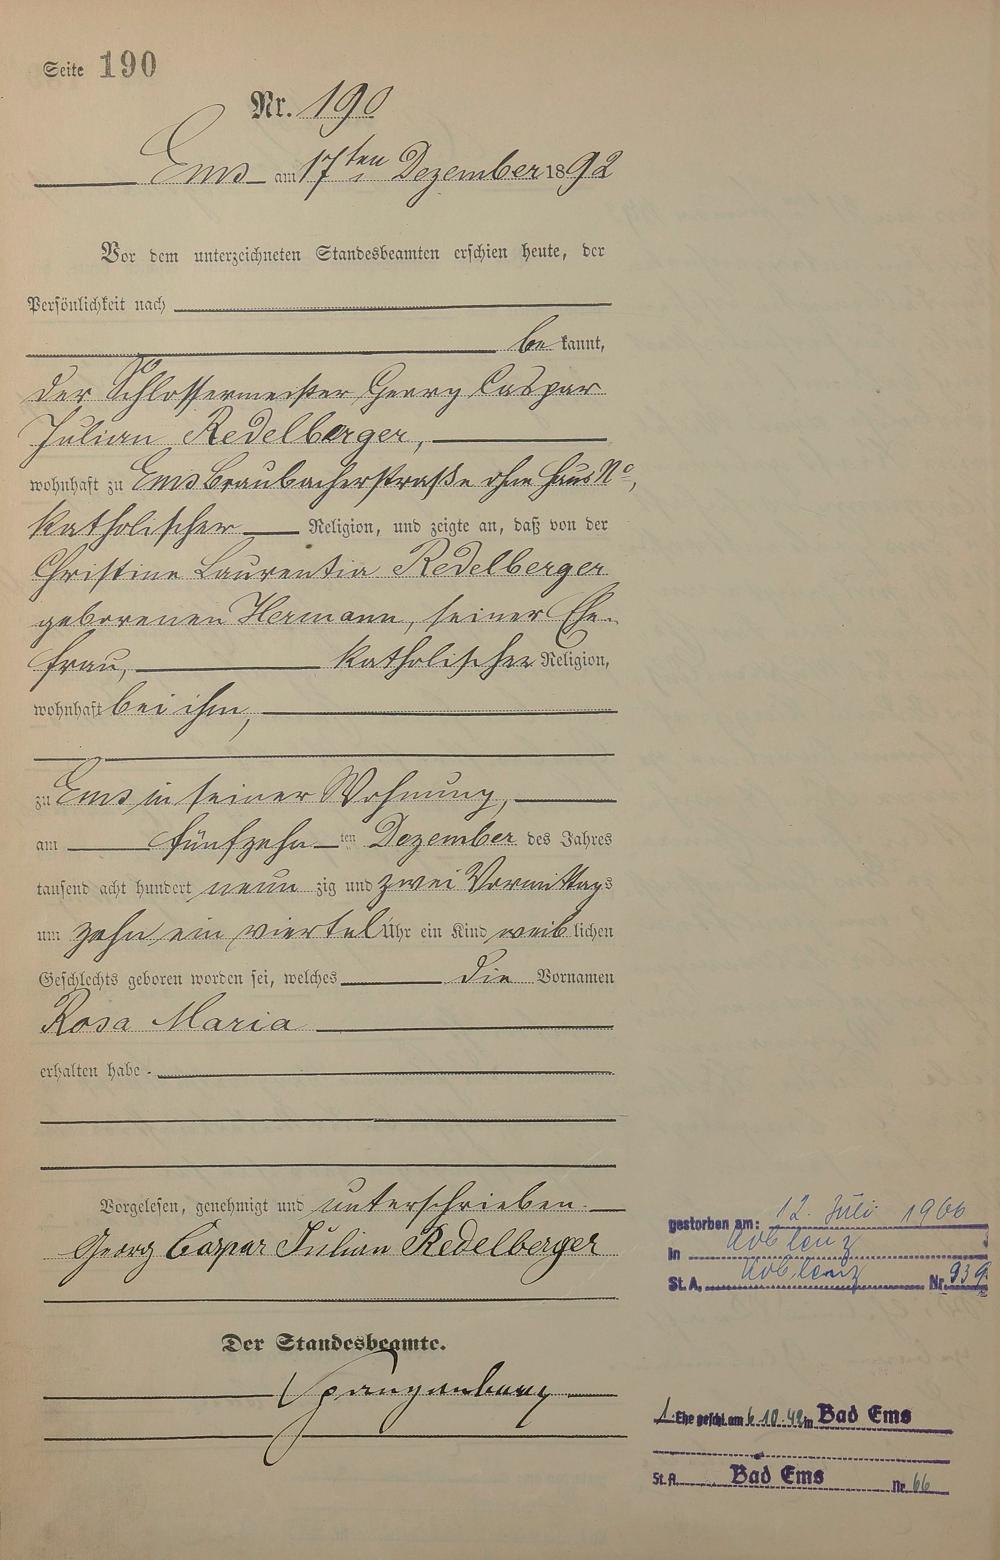 Seite 190
Nr. 190
Ems am 17ten Dezember 1892
Vor dem unterzeichneten Standesbeamten erschien heute, der
Persönlichkeit nach
bekannt,
der Schlossermeister Georg Caspar
Julian Redelberger,
wohnhaft zu Ems Braubacherstraße ohne Haus No,
katholischer Religion, und zeigte an, daß von der
Christine Laurentia Redelberger
geborenen Hermann, seiner Ehe-
frau, katholischer Religion,
wohnhaft bei ihm,
zu Ems in seiner Wohnung,
am fünfzehnten Dezember des Jahres
tausend acht hundert neunzig und zwei Vormittags
um zehn ein viertel Uhr ein Kind weiblichen
Geschlechts geboren worden sei, welches die Vornamen
Rosa Maria
erhalten habe.
Vorgelesen, genehmigt und unterschrieben.
Georg Caspar Julian Redelberger
Der Standesbeamte.
Spangenberg
gestorben am: 12. Juli 1966
in Koblenz
St. A. Koblenz Nr. 939
1. Ehe geschl. am 6.10.42 in Bad Ems
St. A. Bad Ems Nr. 66